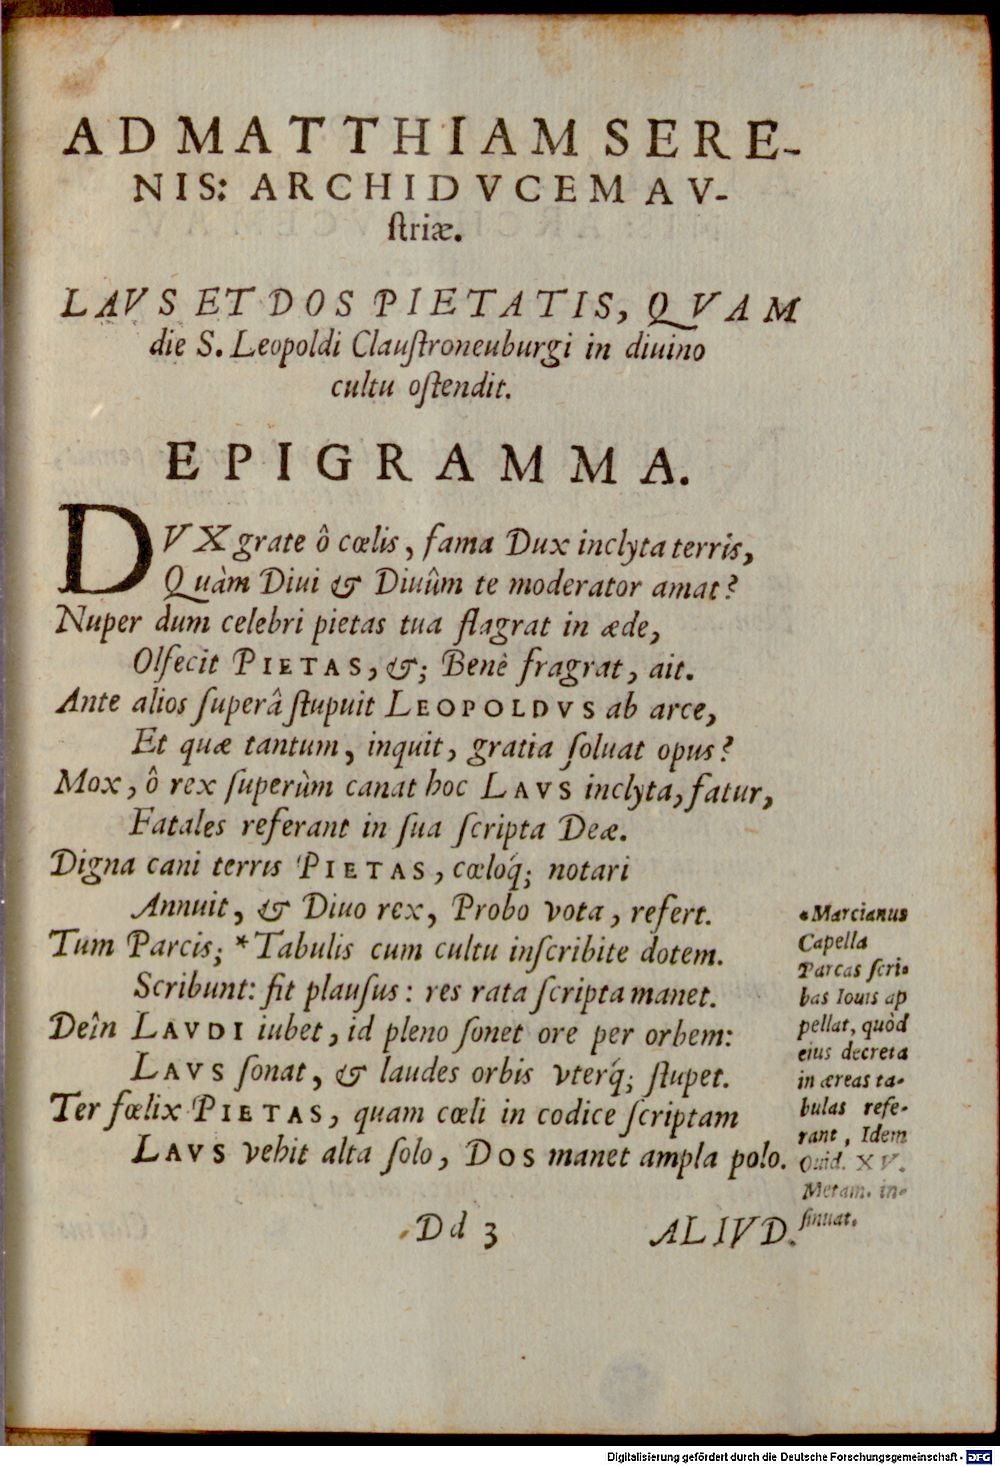 AD MATTHIAM SERE-
NIS: ARCHIDVCEM AV-
ſtriæ.
LAVS ET DOS PIETATIS, QVAM
die S. Leopoldi Clauſtroneuburgi in diuino
cultu oſtendit.
EPIGRAMMA.
DVX grate ô cœlis, fama Dux inclyta terris,
Quàm Diui & Diuûm te moderator amat?
Nuper dum celebri pietas tua flagrat in æde,
Olfecit PIETAS, &; Benè fragrat, ait.
Ante alios ſuperâ ſtupuit LEOPOLDVS ab arce,
Et quæ tantum, inquit, gratia ſoluat opus?
Mox, ô rex ſuperùm canat hoc LAVS inclyta, fatur,
Fatales referant in ſua ſcripta Deæ.
Digna cani terris PIETAS, cœloq́; notari
Annuit, & Diuo rex, Probo vota, refert.
Tum Parcis; *Tabulis cum cultu inſcribite dotem.
Scribunt: fit plauſus: res rata ſcripta manet.
Deîn LAVDI iubet, id pleno ſonet ore per orbem:
LAVS ſonat, & laudes orbis vterq́; ſtupet.
Ter fœlix PIETAS, quam cœli in codice ſcriptam
LAVS vehit alta ſolo, DOS manet ampla polo.
*Marcianus
Capella
Parcas ſcri-
bas Iouis ap
pellat, quòd
eius decreta
in æreas ta-
bulas refe-
rant, Idem
Ouid. XV.
Metam. in-
ſinuat.
Dd 3
ALIVD.
Digitalisierung gefördert durch die Deutsche Forschungsgemeinschaft - DFG